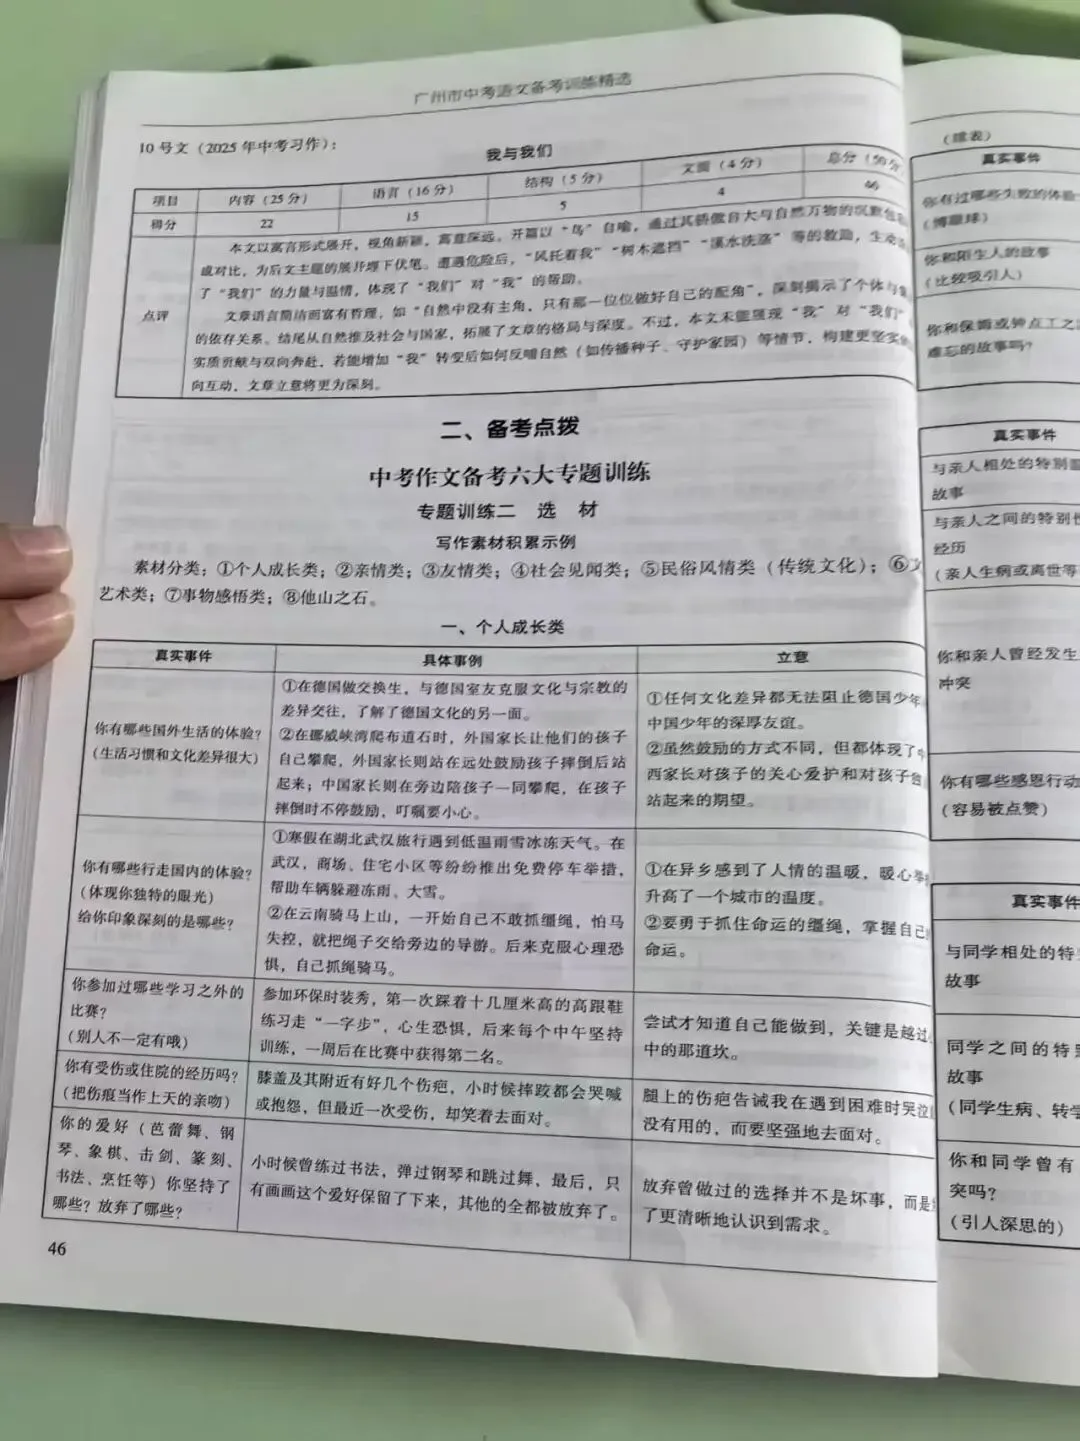 广州市中考语文备考训练精选
10号文（2025年中考习作）：
我与我们
项目 内容（25分） 语言（16分） 结构（5分） 文面（4分） 总分（50分
得分 22 15 5 4 46
点评
本文以寓言形式展开，视角新颖，寓意深远。开篇以“鸟”自喻，通过其骄傲自大与自然万物的沉默包容
成对比，为后文主题的展开埋下伏笔。遭遇危险后，“风托着我”“树木遮挡”“溪水洗涤”等的救助，生动
了“我们”的力量与温情，体现了“我们”对“我”的帮助。
文章语言简洁而富有哲理，如“自然中没有主角，只有那一位位做好自己的配角”，深刻揭示了个体与集
的依存关系。结尾从自然推及社会与国家，拓展了文章的格局与深度。不过，本文未能展现“我”对“我们”
实质贡献与双向奔赴，若能增加“我”转变后如何反哺自然（如传播种子、守护家园）等情节，构建更坚实的
向互动，文章立意将更为深刻。
二、备考点拨
中考作文备考六大专题训练
专题训练二 选 材
写作素材积累示例
素材分类：①个人成长类；②亲情类；③友情类；④社会见闻类；⑤民俗风情类（传统文化）；⑥文
艺术类；⑦事物感悟类；⑧他山之石。
一、个人成长类
真实事件 具体事例 立意
你有哪些国外生活的体验？
（生活习惯和文化差异很大）
①在德国做交换生，与德国室友克服文化与宗教的
差异交往，了解了德国文化的另一面。
②在挪威峡湾爬布道石时，外国家长让他们的孩子
自己攀爬，外国家长则站在远处鼓励孩子摔倒后站
起来；中国家长则在旁边陪孩子一同攀爬，在孩子
摔倒时不停鼓励，叮嘱要小心。
①任何文化差异都无法阻止德国少年
中国少年的深厚友谊。
②虽然鼓励的方式不同，但都体现了中
西家长对孩子的关心爱护和对孩子能
站起来的期望。
你有哪些行走国内的体验？
（体现你独特的眼光）
给你印象深刻的是哪些？
①寒假在湖北武汉旅行遇到低温雨雪冰冻天气。在
武汉，商场、住宅小区等纷纷推出免费停车举措，
帮助车辆躲避冻雨、大雪。
②在云南骑马上山，一开始自己不敢抓缰绳，怕马
失控，就把绳子交给旁边的导游。后来克服心理恐
惧，自己抓绳骑马。
①在异乡感到了人情的温暖，暖心举措
升高了一个城市的温度。
②要勇于抓住命运的缰绳，掌握自己的
命运。
你参加过哪些学习之外的
比赛？
（别人不一定有哦）
参加环保时装秀，第一次踩着十几厘米高的高跟鞋
练习走“一字步”，心生恐惧，后来每个中午坚持
训练，一周后在比赛中获得第二名。
尝试才知道自己能做到，关键是越过心
中的那道坎。
你有受伤或住院的经历吗？
（把伤痕当作上天的亲吻）
膝盖及其附近有好几个伤疤，小时候摔跤都会哭喊
或抱怨，但最近一次受伤，却笑着去面对。
腿上的伤疤告诫我在遇到困难时哭泣是
没有用的，而要坚强地去面对。
你的爱好（芭蕾舞、钢
琴、象棋、击剑、篆刻、
书法、烹饪等）你坚持了
哪些？放弃了哪些？
小时候曾练过书法，弹过钢琴和跳过舞，最后，只
有画画这个爱好保留了下来，其他的全都被放弃了。
放弃曾做过的选择并不是坏事，而是
了更清晰地认识到需求。
46
（续表）
真实事件
你有过哪些失败的体验
（博眼球）
你和陌生人的故事
（比较吸引人）
你和保姆或钟点工之
难忘的故事吗？
真实事件
与亲人相处的特别
故事
与亲人之间的特别
经历
（亲人生病或离世等
你和亲人曾经发生
冲突
你有哪些感恩行动
（容易被点赞）
真实事件
与同学相处的特
故事
同学之间的特
故事
（同学生病、转学
你和同学曾有
突吗？
（引人深思的）